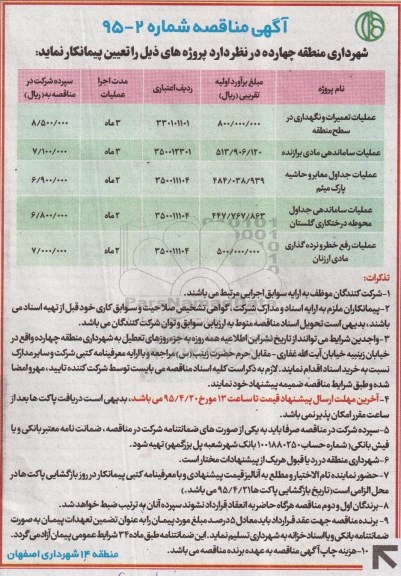 آگهی مناقصه شماره ۲-۹۵
شهرداری منطقه چهارده در نظر دارد پروژه های ذیل را تعیین پیمانکار نماید:
نام پروژه | مبلغ برآورد اولیه تقریبی (ریال) | ردیف اعتباری | مدت اجرا عملیات | سپرده شرکت در مناقصه به (ریال)
عملیات تعمیرات و نگهداری در سطح منطقه | ۸۰۰/۰۰۰/۰۰۰ | ۳۳۰۱۰۱۱۰۱ | ۳ ماه | ۸/۵۰۰/۰۰۰
عملیات ساماندهی مادی برازنده | ۵۱۳/۹۰۶/۱۲۰ | ۳۵۰۰۱۲۳۰۱ | ۳ ماه | ۷/۱۰۰/۰۰۰
عملیات جداول معابر و حاشیه پارک میثم | ۴۸۴/۰۳۸/۹۳۹ | ۳۵۰۰۱۱۱۰۴ | ۲ ماه | ۶/۹۰۰/۰۰۰
عملیات ساماندهی جداول محوطه درختکاری گلستان | ۴۴۷/۷۶۷/۸۶۳ | ۳۵۰۰۱۱۱۰۴ | ۲ ماه | ۶/۸۰۰/۰۰۰
عملیات رفع خطر و نرده گذاری مادی ارزنان | ۵۰۰/۰۰۰/۰۰۰ | ۳۵۰۰۱۱۱۰۴ | ۲ ماه | ۷/۰۰۰/۰۰۰
تذکرات:
۱- شرکت کنندگان موظف به ارایه سوابق اجرایی مرتبط می باشند.
۲- پیمانکاران ملزم به ارایه اسناد و مدارک شرکت، گواهی تشخیص صلاحیت و سوابق کاری خود قبل از تهیه اسناد می
باشند، بدیهی است تحویل اسناد مناقصه منوط به ارزیابی سوابق و توان شرکت کنندگان می باشد.
۳- واجدین شرایط می توانند از تاریخ نشر این اطلاعیه همه روزه به جز روزهای تعطیل به شهرداری منطقه چهارده واقع در
خیابان زینبیه خیابان آیت الله غفاری - مقابل حرم حضرت زینب (س) مراجعه و با ارایه معرفینامه کتبی شرکت و سایر مدارک
نسبت به خرید اسناد اقدام نمایند. لازم به ذکر است کلیه اسناد مناقصه می بایست توسط شرکت کننده تایید، مهر و امضا
شده و طبق شرایط مناقصه ضمیمه پیشنهاد خود نمایند.
۴- آخرین مهلت ارسال پیشنهاد قیمت تا ساعت ۱۳ مورخ ۹۵/۴/۲۰ می باشد، بدیهی است دریافت پاکت ها بعد از
ساعت مقرر امکان پذیر نمی باشد.
۵- سپرده شرکت در مناقصه صرفا باید به یکی از صورت های ضمانتنامه شرکت در مناقصه، ضمانت نامه معتبر بانکی و یا
فیش بانکی (شماره حساب ۱۰۰۱۸۸۰۲۵۰ بانک شهر شعبه پل بزرگمهر) تهیه شود.
۶- شهرداری منطقه در رد یا قبول هر یک از پیشنهادات مختار است.
۷- حضور نماینده تام الاختیار و مطلع به آنالیز قیمت پیشنهادی و با معرفینامه کتبی پیمانکار در روز بازگشایی پاکت ها در
محل الزامی است (تاریخ بازگشایی پاکت ها ۹۵/۴/۲۱ می باشد.)
۸- برندگان اول و دوم مناقصه هرگاه حاضر به انعقاد قرارداد نشوند سپرده آنان به ترتیب ضبط خواهد شد.
۹- برنده مناقصه جهت عقد قرارداد باید معادل ۵ درصد مبلغ مورد پیمان را به عنوان تضمین تعهدات پیمان به صورت
ضمانتنامه بانکی و یا اسناد خزانه به شهرداری تسلیم نماید. این ضمانتنامه طبق ماده ۳۴ شرایط عمومی پیمان آزاد می گردد.
۱۰- هزینه چاپ آگهی مناقصه به عهده برنده مناقصه می باشد.
منطقه ۱۴ شهرداری اصفهان